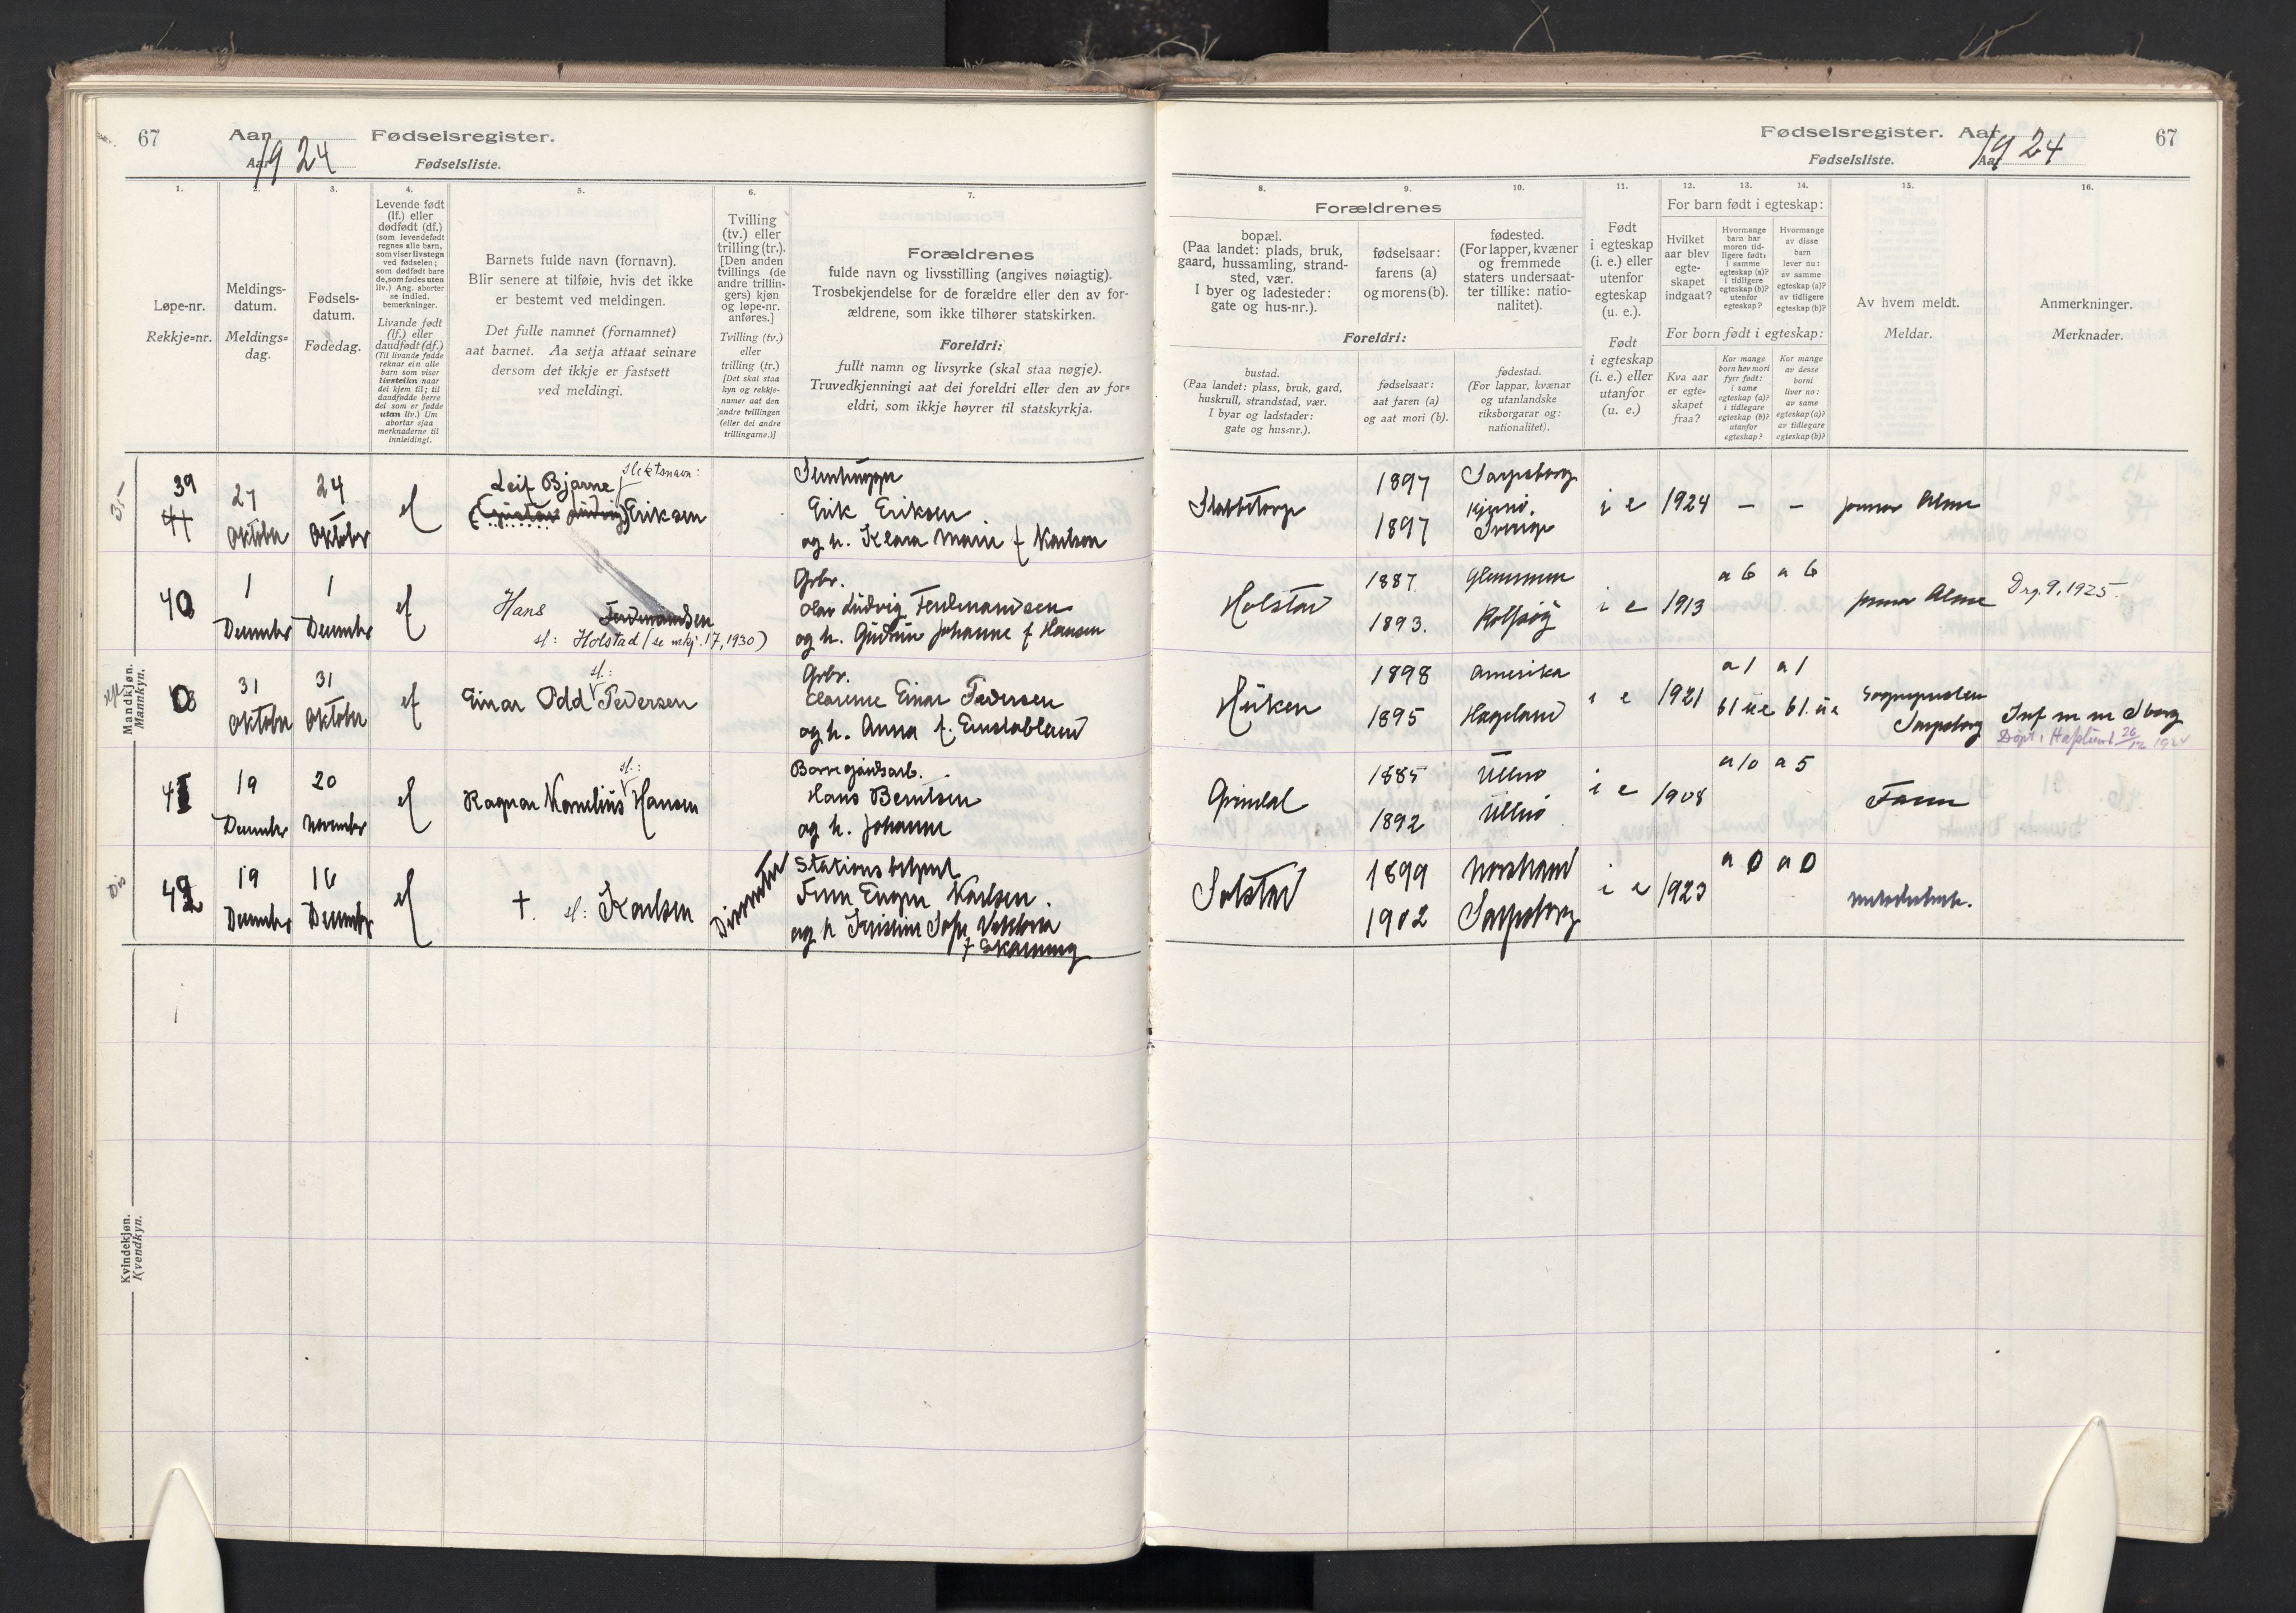 67
Aar
Fødselsregister.
Aar 1924
Fødselsliste.
1.
2.
3.
4.
5.
6.
7.
Løpe-nr.
Rekkje=nr.
Meldings-
datum.
Meldings=
dag.
Fødsels-
datum.
Fødedag.
Levende født
(lf.) eller
dødfødt (df.)
(som levendefødt
regnes alle barn,
som viser livstegn
ved fødselen;
som dødfødt bare
de, som fødes uten
liv.) Ang. aborter
se indled.
bemerkninger.
Livande født
(lf.) eller
daudfødt (df.)
(Til livande fødde
reknar ein alle
barn som viser
livsteikn naar
dei kjem til; til
daudfødde berre
dei som er fødde
utan liv.) Um
abortar sjaa
merknaderne til
innleidingi.
Barnets fulde navn (fornavn).
Blir senere at tilføie, hvis det ikke
er bestemt ved meldingen.
Det fulle namnet (fornamnet)
aat barnet. Aa setja attaat seinare
dersom det ikkje er fastsett
ved meldingi.
Tvilling
(tv.) eller
trilling (tr.).
[Den anden
tvillings (de
andre trillin-
gers) kjøn
og løpe-nr.
anføres.]
Tvilling (tv.)
eller
trilling (tr.)
[Det skal staa
kyn og rekkje-
numer aat den
andre tvillingen
(eller dei andre
trillingarne.)]
Forældrenes
fulde navn og livsstilling (angives nøiagtig).
Trosbekjendelse for de forældre eller den av for-
ældrene, som ikke tilhører statskirken.
Foreldri:
fullt namn og livsyrke (skal staa nøgje).
Truvedkjenningi aat dei foreldri eller den av for=
eldri, som ikkje høyrer til statskyrkja.
Mandkjøn.
Mannkyn.
3,-
39
41
27
Oktober
24
Oktober
lf
slektsnavn:
Leif Bjarne
(Gustav Ludvig) Eriksen
Erik Eriksen
og h. Klara Marie f Karlsen
40
1
December
1
December
lf
Hans Ferdinandsen
sl: Holstad (se mkj. 17, 1930)
Gbr.
Olav Ludvig Ferdinandsen
og h. Gudrun Johanne f Hansen
0
31
Oktober
31
Oktober
lf
sl.:
Einar Odd Pedersen
Gbr.
Clarence Einar Pedersen
og h. Anna f.
41
19
December
20
November
lf
sl.:
Ragnar Kornelius Hansen
Borregaardsarb.
Hans Berntsen
og h. Johanne
42
19
December
16
December
lf
†. sl: Karlsen
Dissenter
Stationsbetjent
Karlsen.
og h
Kvindekjøn.
Kvendkyn.
Fødselsregister. Aar
67
Fødselsliste.
Aar 1924
8.
9.
10.
11.
12.
13.
14.
15.
16.
Forældrenes
bopæl.
(Paa landet: plads, bruk,
gaard, hussamling, strand-
sted, vær.
I byer og ladesteder:
gate og hus-nr.).
fødselsaar:
farens (a)
og morens (b).
fødested.
(For lapper, kvæner
og fremmede
staters undersaat-
ter tillike: natio-
nalitet).
Foreldri:
bustad.
(Paa landet: plass, bruk, gard,
huskrull, strandstad, vær.
I byar og ladstader:
gate og hus=nr.).
fødselsaar:
aat faren (a)
og aat mori (b).
fødestad.
(For lappar, kvænar
og utanlandske
riksborgarar og:
nationalitet).
Født
i egteskap
(i. e.) eller
utenfor
egteskap
(u. e.).
Født
i egteskap
(i. e.) eller
utanfor
(u. e.)
For barn født i egteskap:
Hvilket
aar blev
egte-
skapet
indgaat?
Hvormange
barn har
moren tid-
ligere født:
i samme
egteskap (a)?
i tidligere
egteskap (b)?
utenfor
egteskap?
Hvormange
av disse
barn
lever nu:
av samme
egteskap (a)?
av tidligere
egteskap (b)?
For born født i egteskap:
Kva aar
er egte-
skapet
fraa?
Kor mange
born hev mori
fyrr født:
i same
egteskap (a)?
i tidlegare
egteskap (b)?
utanfor
egteskap?
Kor mange
av desse
borni
liver no:
av same
egteskap (a)?
av tidlegare
egteskap (b)?
Av hvem meldt.
Meldar.
Anmerkninger.
Merknader.
1897
1897
Sarpsborg
Sverige
i e
1924
–
–
jormor Alme
Holstad
1887
1893.
Glemmen
Rolfsøy
i e
1913
a 6
a 6
jormor Alme
Drg. 9, 1925.
Hüken
1898
1895
Amerika
Hægeland
i e
1921
a 1
b 1 ue
a 1
b 1. ue
Sognepresten
Sarpsborg
Inf m m Sborg
Døpt i Hafslund 26/12 1924
Grindal
1885
1892
Ullerø
Ullerø
i e
1908
a 10
a 5
Faren
Solstad
1899
1902
Sarpsborg
i e
1923
a 0
a 0